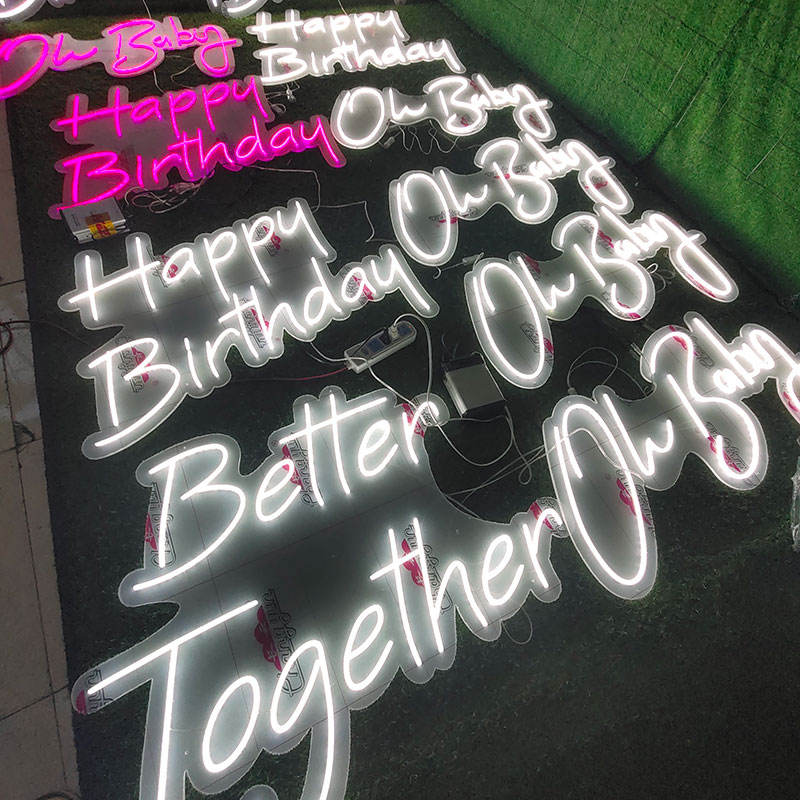 Oh Baby
Happy
Birthday
Happy
Birthday
Oh Baby
Happy
Birthday
Oh Baby
Oh Baby
Better
Together
Oh Baby